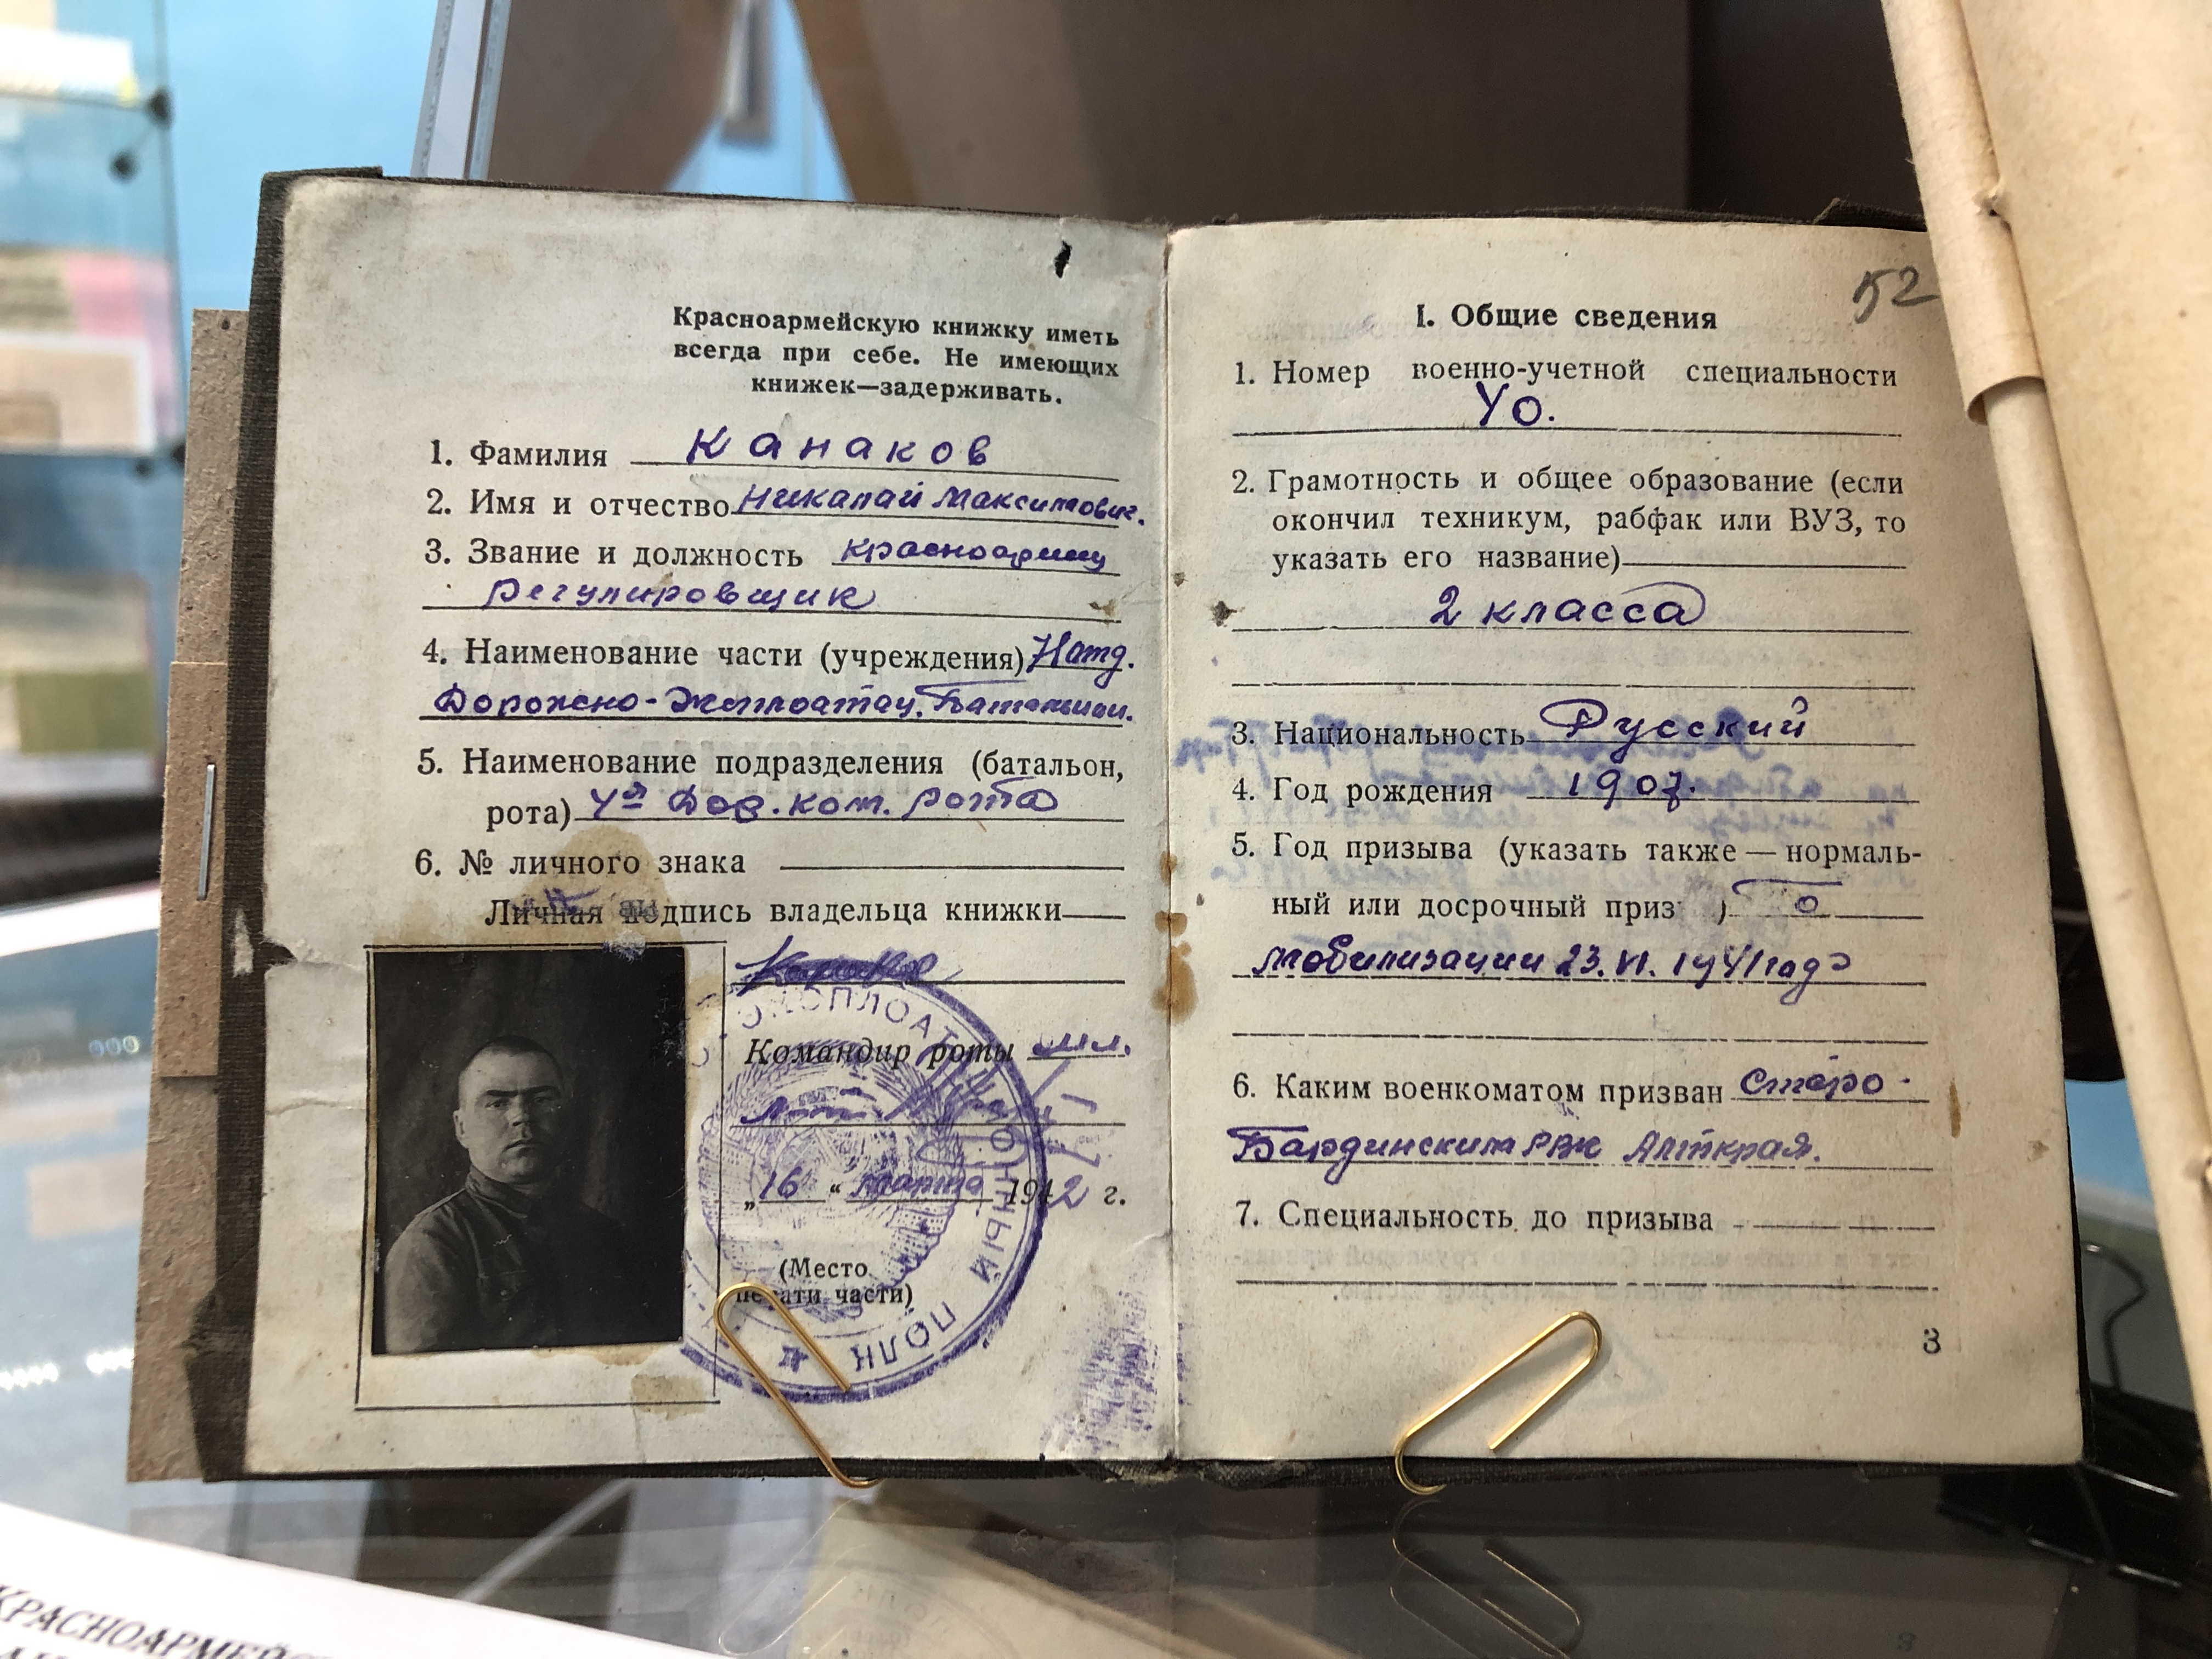 Красноармейскую книжку иметь
всегда при себе. Не имеющих
книжек—задерживать.
1. Фамилия Канаков
2. Имя и отчество Никалай Максимович.
3. Звание и должность красноармец
Регулировщик
4. Наименование части (учреждения)
Дорожно-Эксплоатац. Батальион.
5. Наименование подразделения (батальон,
рота) 4я Дор. ком. рота
6. № личного знака
Личная подпись владельца книжки
Командир роты мл.
„16“ марта 1942 г.
(Место
печати части)
ЭКСПЛОАТ ОННЫЙ ПОЛК
52
I. Общие сведения
1. Номер военно-учетной специальности
УО.
2. Грамотность и общее образование (если
окончил техникум, рабфак или ВУЗ, то
указать его название)
2 класса
3. Национальность Русский
4. Год рождения 1907.
5. Год призыва (указать также — нормаль-
ный или досрочный приз )
мобилизации 23.VI.1941 года
6. Каким военкоматом призван Старо-
Бардинским РВК Алткрая.
7. Специальность до призыва
3
КРАСНОАРМЕЙС